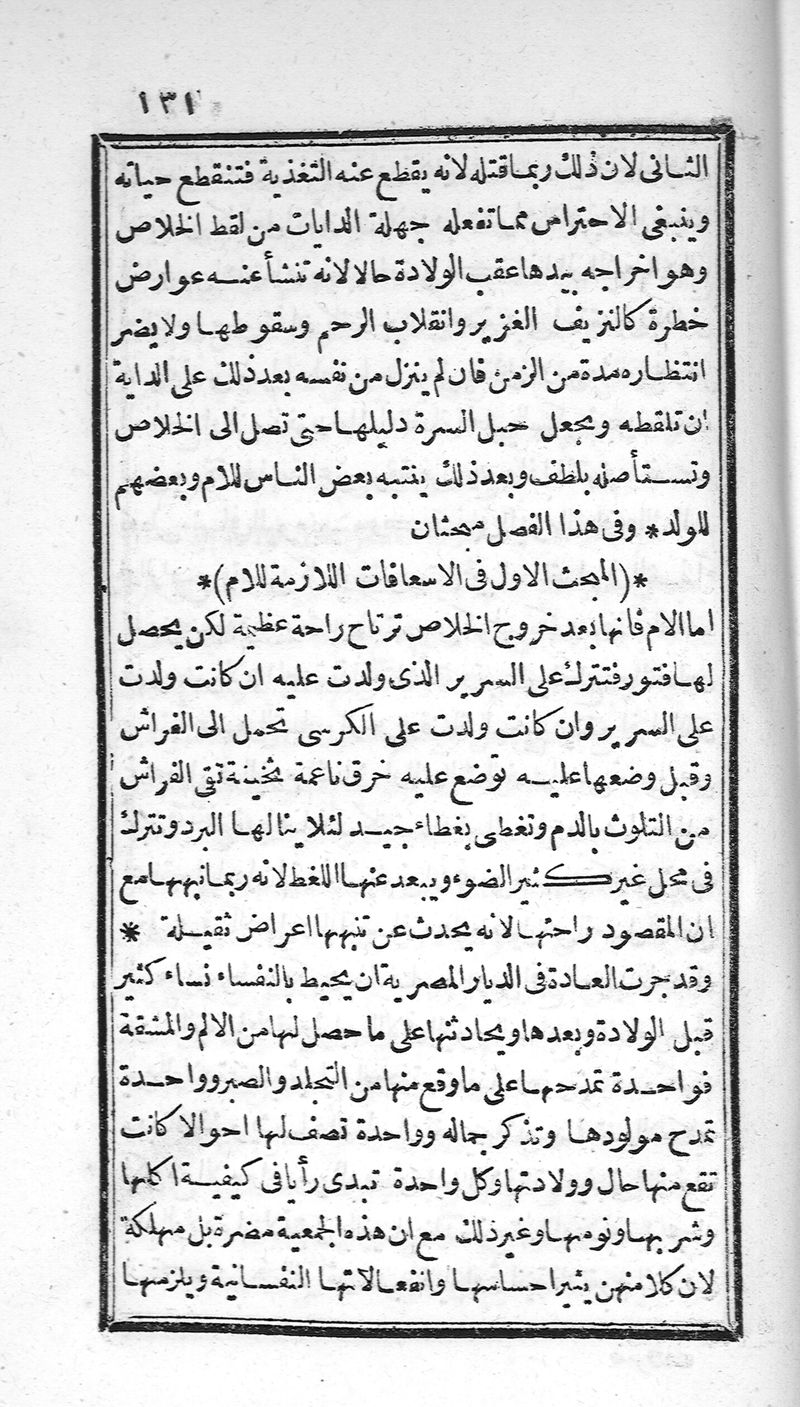 ١٣١
الثانى لان ذلك ربما قتله لانه يقطع عنه التغذية فتنقطع حياته
وينبغى الاحتراس مما تفعله جهلة الدايات من لقط الخلاص
وهو اخراجه بيدها عقب الولادة حالا لانه تنشأ عنه عوارض
خطرة كالنزيف الغزير وانقلاب الرحم وسقوطها ولا يضر
انتظاره مدة من الزمن فان لم ينزل من نفسه بعد ذلك على الداية
ان تلقطه ويجعل حبل السرة دليلها حتى تصل الى الخلاص
وتستأصله بلطف وبعد ذلك ينتبه بعض الناس للام وبعضهم
للولد * وفى هذا الفصل مبحثان
*(المبحث الاول فى الاسعافات اللازمة للام)*
اما الام فانها بعد خروج الخلاص ترتاح راحة عظيمة لكن يحصل
لها فتور فتترك على السرير الذى ولدت عليه ان كانت ولدت
على السرير وان كانت ولدت على الكرسى تحمل الى الفراش
وقبل وضعها عليه توضع عليه خرق ناعمة ثخينة تقى الفراش
من التلوث بالدم وتغطى بغطاء جيد لئلا ينالها البرد وتترك
فى محل غير كثير الضوء ويبعد عنها اللغط لانه ربما نبهها مع
ان المقصود راحتها لانه يحدث عن تنبهها اعراض ثقيلة *
وقد جرت العادة فى الديار المصرية ان يحيط بالنفساء نساء كثير
قبل الولادة وبعدها ويحادثنها على ما حصل لها من الالم والمشقة
فواحدة تمدحها على ما وقع منها من التجلد والصبر وواحدة
تمدح مولودها وتذكر جماله وواحدة تصف لها احوالا كانت
تقع منها حال وولادتها وكل واحدة تبدى رأيا فى كيفية اكلها
وشربها ونومها وغير ذلك مع ان هذه الجمعية مضرة بل مهلكة
لان كلا منهن يثير احساسها وانفعالاتها النفسانية ويلزمها